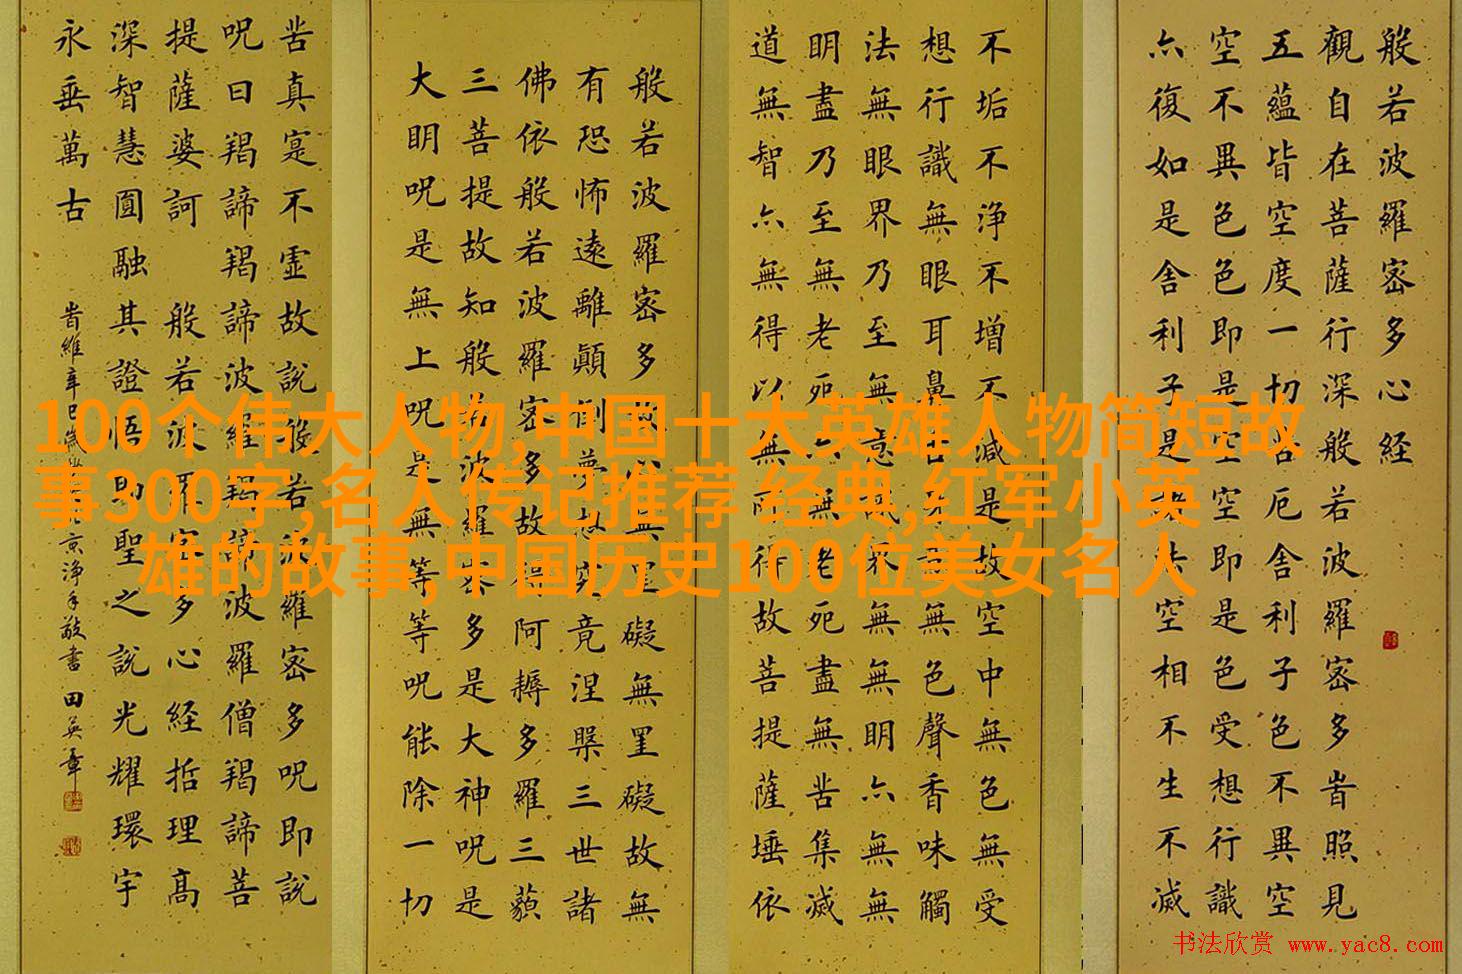 100个伟大人物,中国十大英雄人物简短故
事300字,名人传记推荐 经典,红军小英
雄的故事,中国历史100位美女名人
般若波羅密多心经
觀自在菩薩行深般若波羅密多旹照見
五蘊皆空度一切苦厄舍利子色不異空
空不異色色即是空空即是色受想行識
亦復如是舍利子是法空相不生不滅
不垢不浄不增不減是故空中無色無受
想行識無眼耳鼻舌身意無色聲香味觸
法無眼界乃至無意識界無無明亦無無
明盡乃至無老死亦無老死盡無苦集滅
道無智亦無得以無所得故菩提薩埵依
般若波羅密多故心無罣礙無罣礙故無
有恐怖遠離顛倒夢想究竟涅槃三世諸
佛依般若波羅密多故得阿耨多羅三藐
三菩提故知般若波羅密多是大神呪是
大明呪是無上呪是無等等呪能除一切
苦真寔不虛故説般若波羅密多呪即説
呪曰羯諦羯諦波羅羯諦波羅僧羯諦菩
提薩婆訶 般若波羅密多心経括理高
深智慧圓融其證悟即聖之説光耀環宇
永垂萬古
旹維辛巳京浄手敬書 田英章
书法欣赏 www.yac8.com